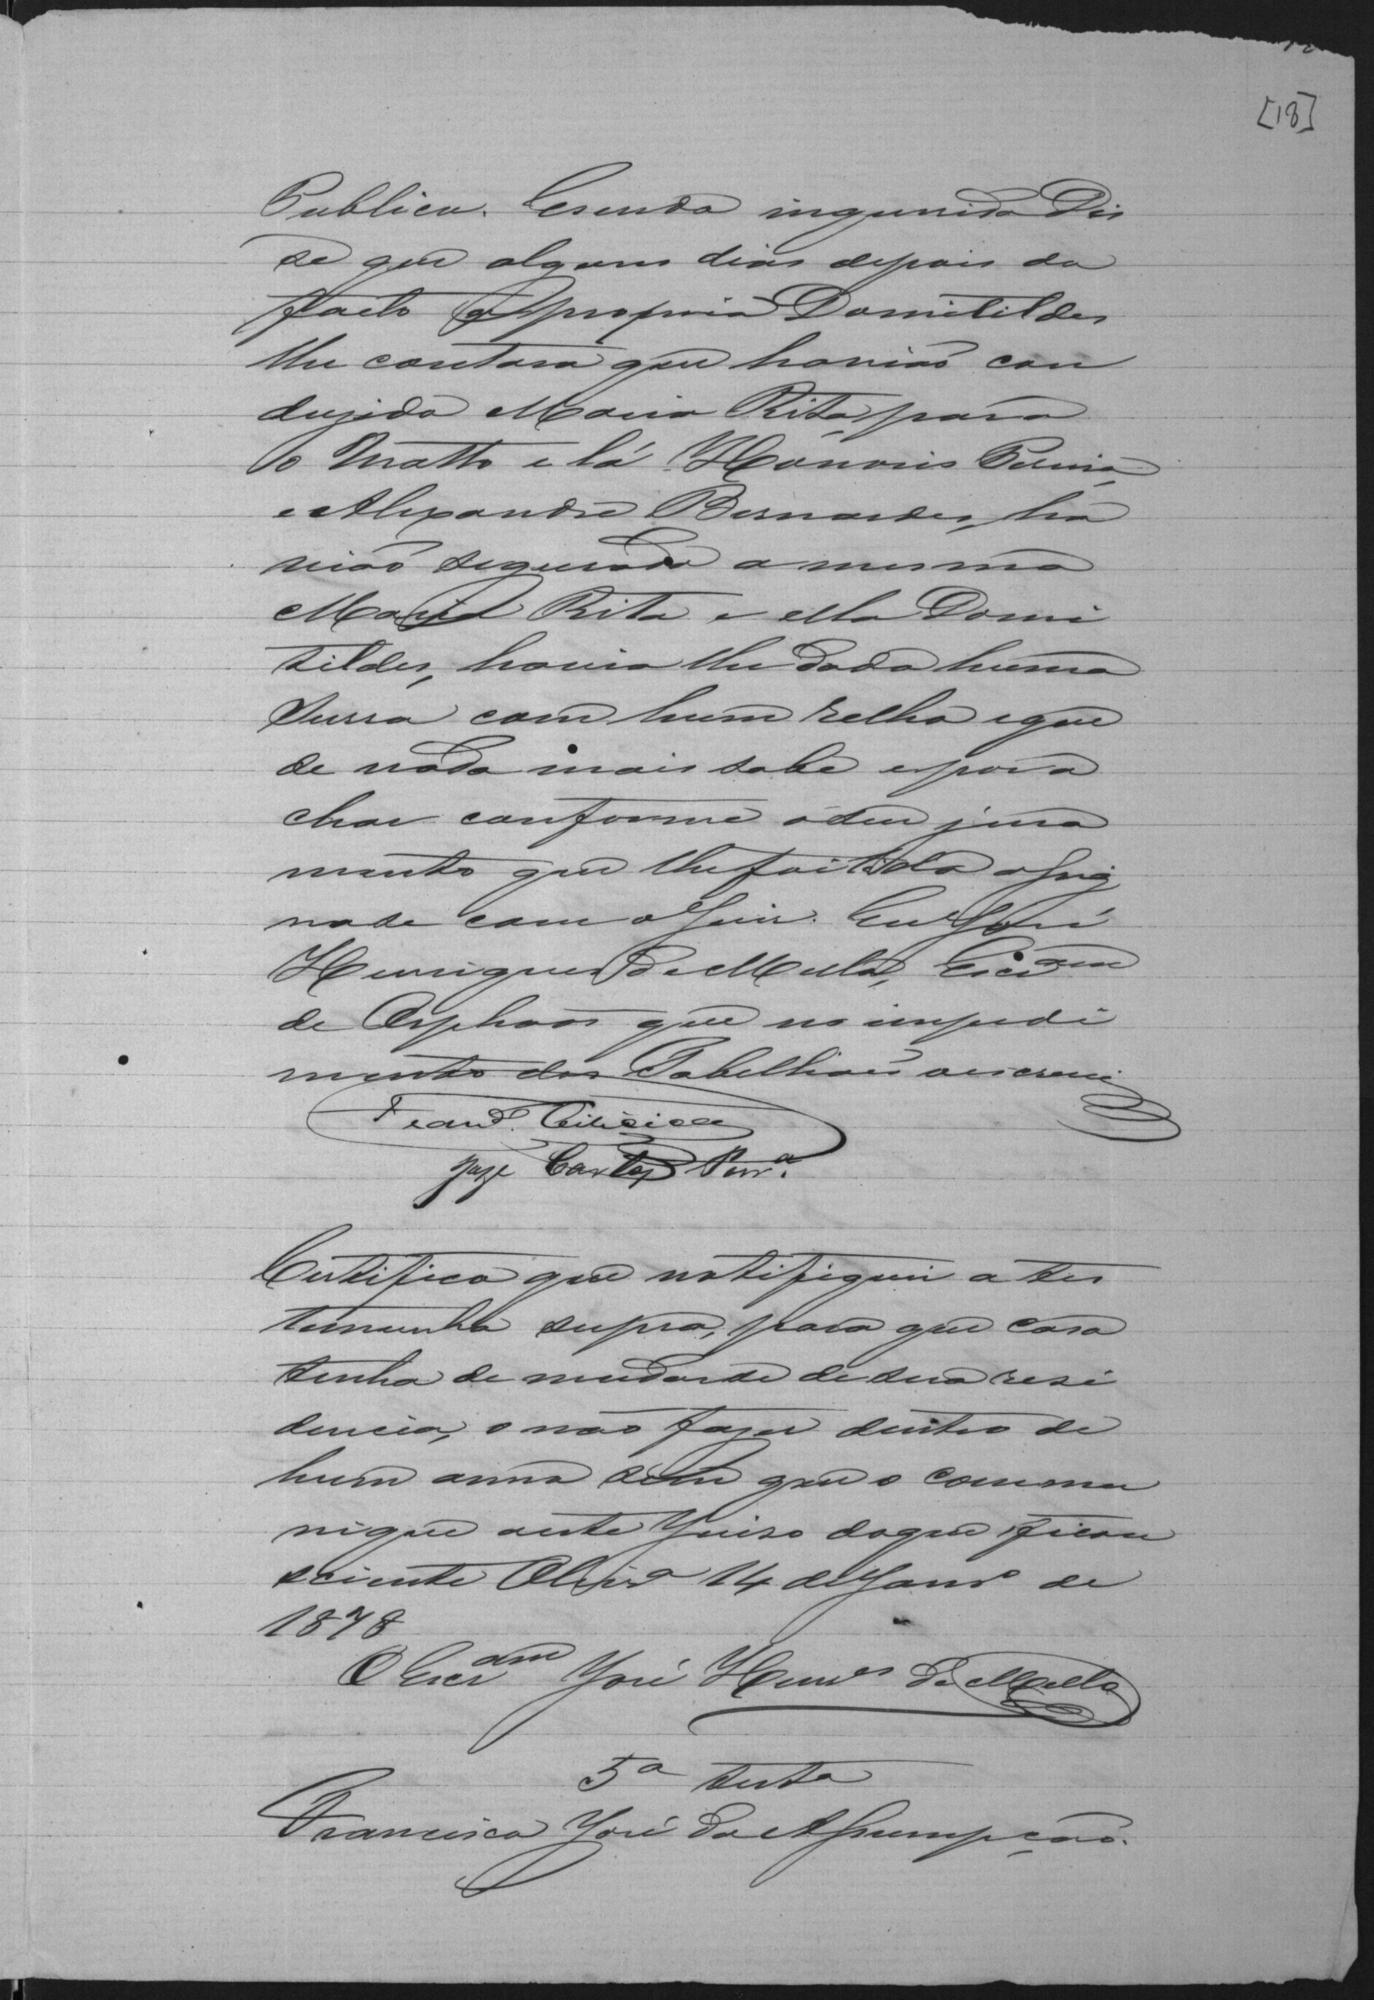 [18]
Publico. E sendo inquirido Dis
se que alguns dias depois do
facto a propria Domitildes
lhe contara que havião con
dusido Maria Rita, para
o Matto e lá Honorio Pereira,
e Alexandre Bernardes, ha
vião segurado a mesma
Maria Rita e ella Domi
tildes, havia lhe dado huma
surra com hum relho e que
de nada mais sabe e por a
char conforme o seu jura
mento que lhe foi lido assig
na se com o Juis. Eu José
Henriques de Mello, Escr.am
de Orphaos que no impedi
mento dos Tabelliaes o escrevi
José Carlos Perr.a
Certifico que notifiquei a tes
temunha supra, para que caso
tenha de mudar se de sua resi
dencia, o não faser dentro de
hum anno sem que o commu
nique a este Juiso do que ficou
sciente 14 de Janr.o de
1878
O Escr.am José Henr.es de Mello
5a testa
Francisco José da Assumpção.